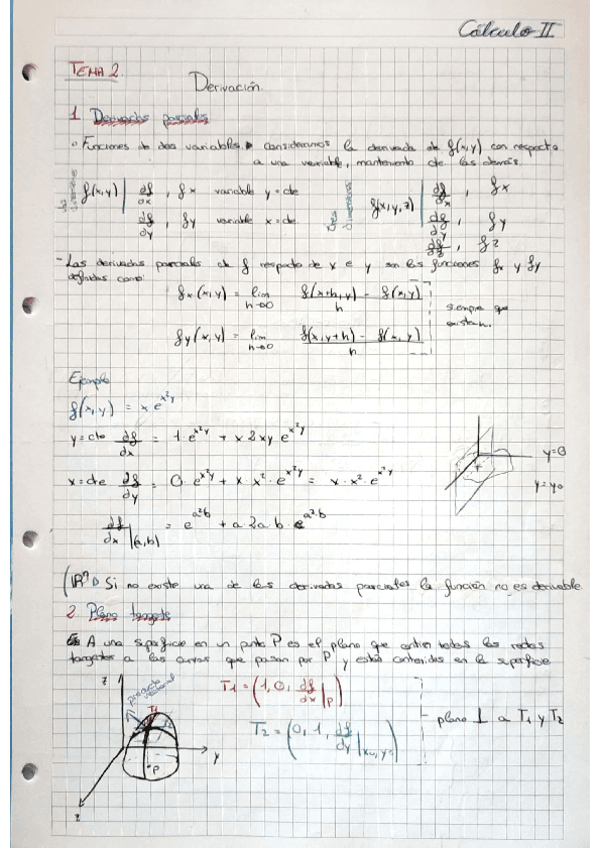 Cálculo II
TEMA 2.
Derivación.
1 Derivadas parciales
Funciones de dos variables. consideramos la derivada de f(x,y) con respecto
a una variable, manteniendo cte las demás.
f(x,y) | df/dx , fx variable y=cte
f(x,y,z) | df/dx , fx
df/dy , fy variable x=cte
df/dy , fy
df/dz , fz
- Las derivadas parciales de f respecto de x e y son las funciones fx y fy
definidas como:
fx(x,y) = lim h→0 f(x+h,y) - f(x,y) / h
siempre que
existan.
fy(x,y) = lim h→0 f(x,y+h) - f(x,y) / h
Ejemplo
f(x,y) = x e^x²y
y=cte df/dx = 1·e^x²y + x 2xy e^x²y
y=0
x=cte df/dy = 0·e^x²y + x·x²·e^x²y = x·x²·e^x²y
y=y0
df/dx|(a,b) = e^a²b + a 2ab·e^a²b
Si no existe una de las derivadas parciales la función no es derivable
2 Plano tangente
A una superficie en un punto P es el plano que contien todas las rectas
tangentes a las curvas que pasan por P y estás contenidas en la superficie
z
T1 = (1, 0, df/dx|p)
T1
T2 = (0, 1, df/dy|x0,y0)
plano ⊥ a T1 y T2
y
P